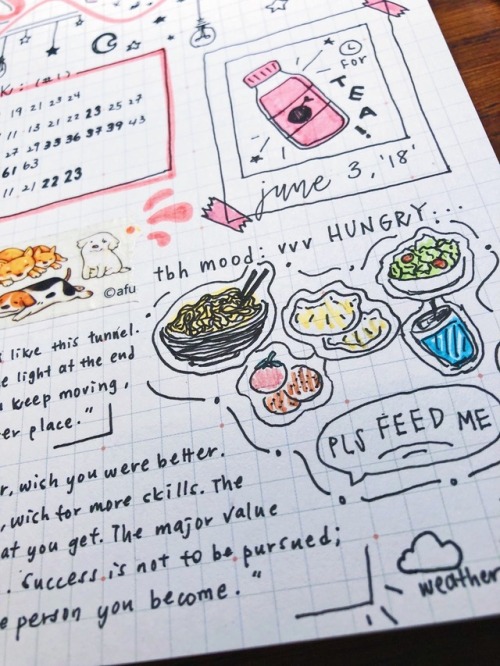 19 21 23 24
11 13 21 22 23 25 27
27 29 33 36 37 39 43
61 63
11 21 22 23
🕒 FOR
TEA!
june 3, '18'
tbh mood: vvv HUNGRY...
©afu
like this tunnel.
light at the end
keep moving,
place."
PLS FEED ME
, wish you were better.
, wish for more skills. The
at you get. The major value
. Success is not to be pursued;
person you become."
weather